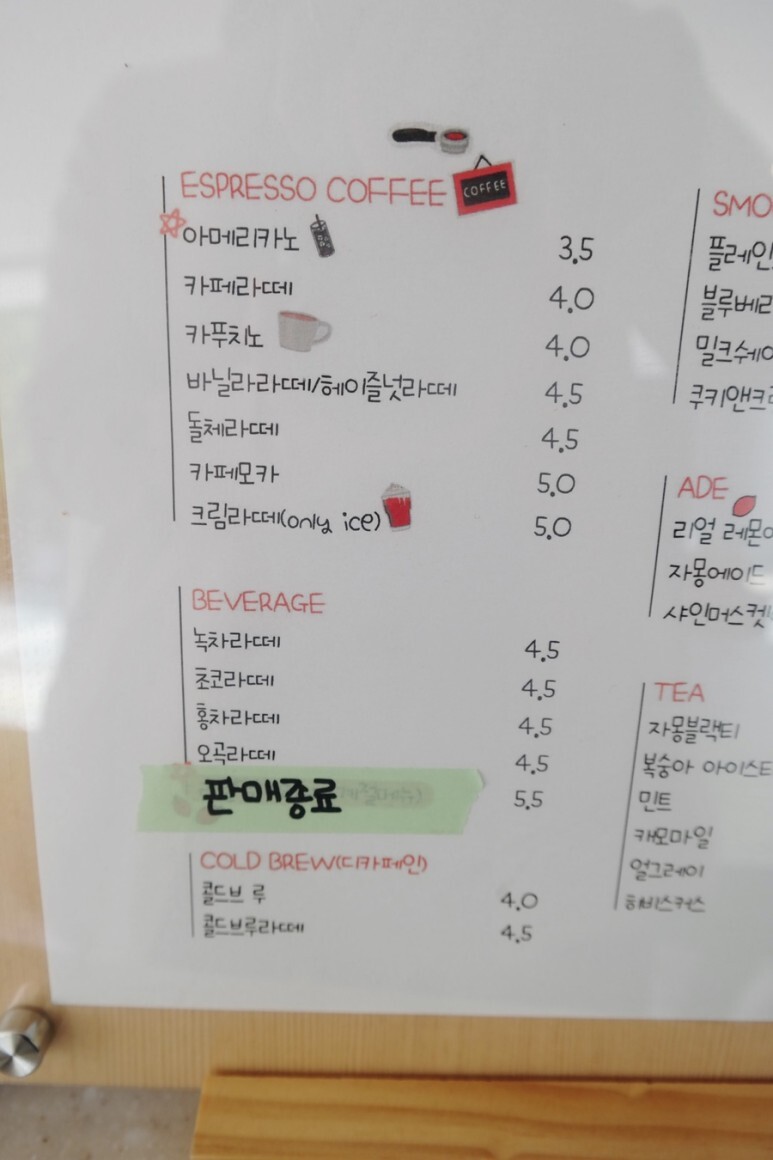 ESPRESSO COFFEE
COFFEE
아메리카노 3.5
카페라떼 4.0
카푸치노 4.0
바닐라라떼/헤이즐넛라떼 4.5
돌체라떼 4.5
카페모카 5.0
크림라떼(only ice) 5.0
BEVERAGE
녹차라떼 4.5
초코라떼 4.5
홍차라떼 4.5
오곡라떼 4.5
판매종료 5.5
COLD BREW(디카페인)
콜드브 루 4.0
콜드브루라떼 4.5
SMO
플레인
블루베리
밀크쉐이
쿠키앤크리
ADE
리얼 레몬에
자몽에이드
샤인머스켓
TEA
자몽블랙티
복숭아 아이스티
민트
캐모마일
얼그레이
히비스커스